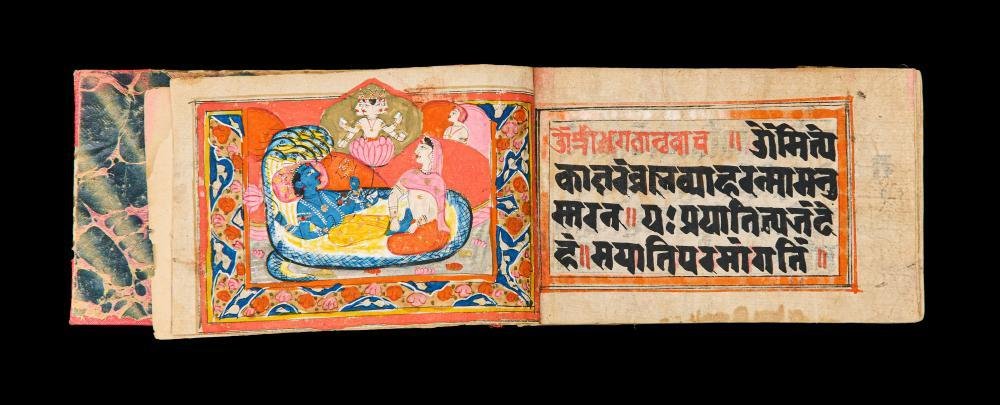 ॐश्रीभगवानुवाच ॥ ॐमित्ये
काक्षरंब्रह्मव्याहरन्मामनु
स्मरन ॥ यः प्रयातित्यजंदे
हं ॥ सयातिपरमांगतिं ॥